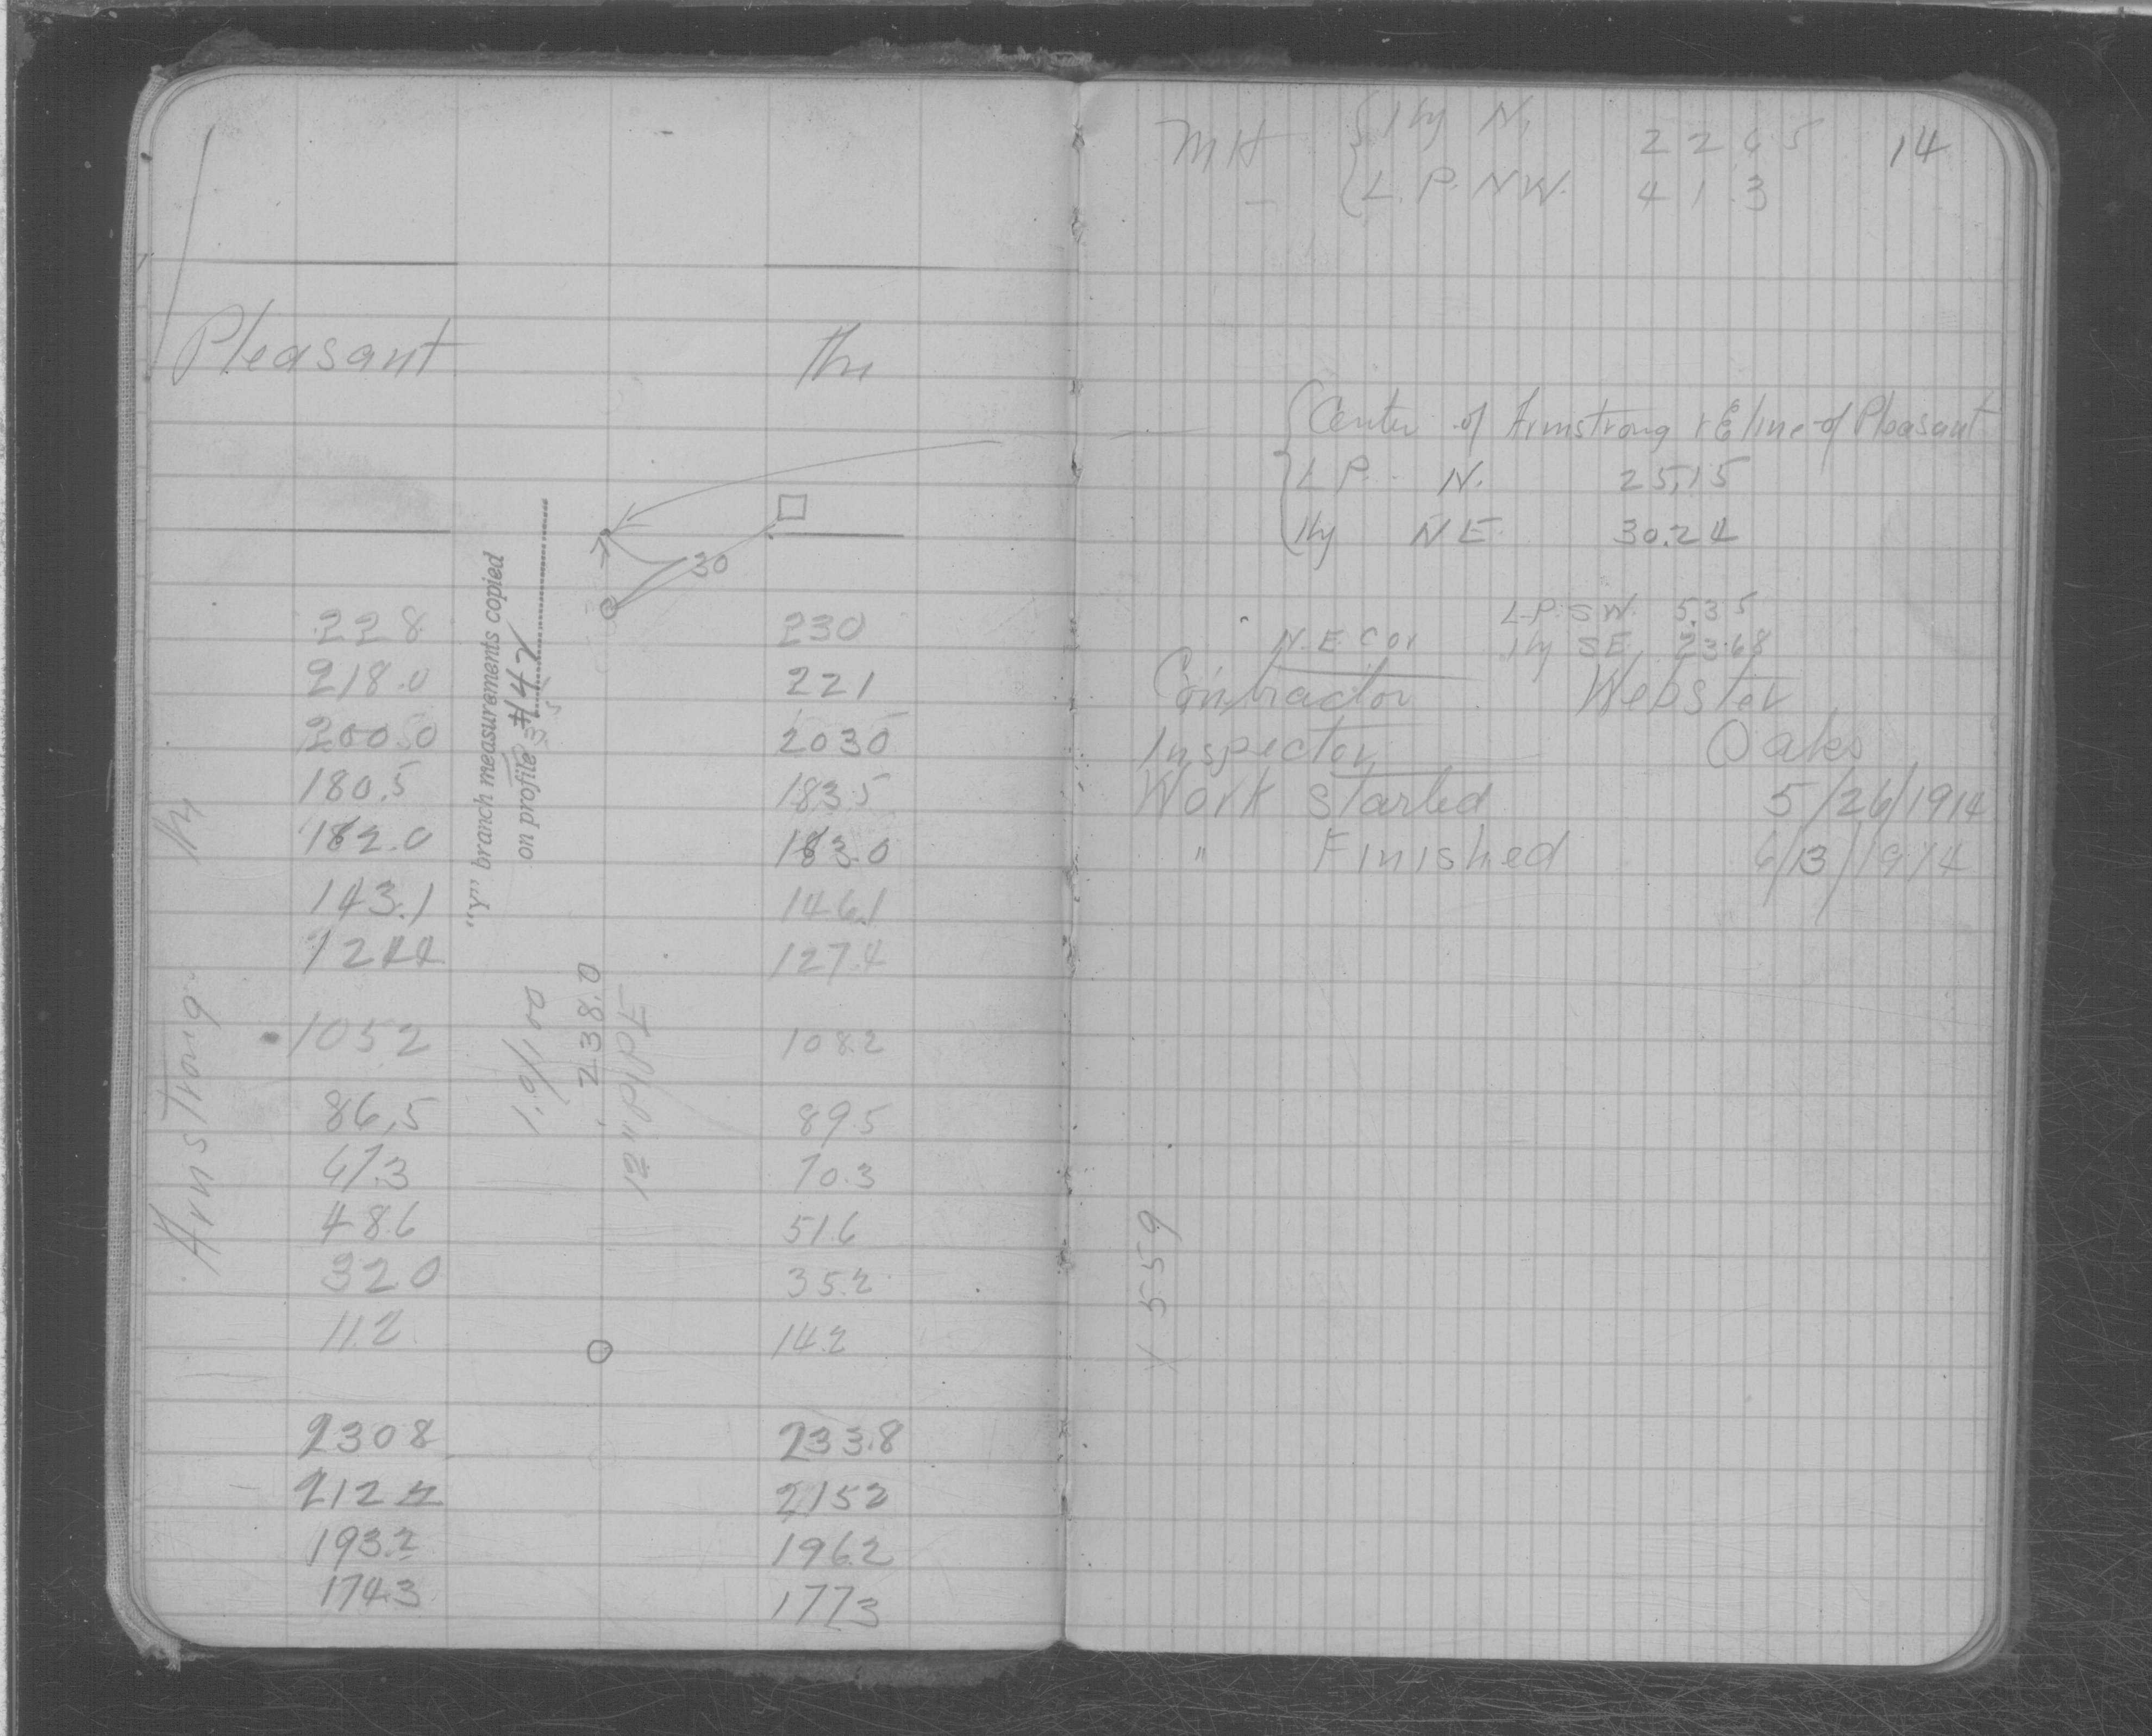 Pleasant
30
228 230
218.0 221
200.0 2030
180.5 183.5
182.0 183.0
143.1 146.1
127.4
1052 108.2
86.5 89.5
67.3 70.3
48.6 51.6
320 35.2
11.2 14.2
2308 233.8
2122 2152
193.2 1962
174.3 1773
Armstrong
"Y" branch measurements copied
on profile
1.9/100
238.0
12" PIPE
14
MH
L.P. NW. 41.3
Center of Armstrong & E line of Pleasant
L P. N. 25.15
Hy N E 30.24
L.P. S W. 5.35
N. E. Cor Hy S E. 23.68
Contractor Webster
Inspector Oaks
Work Started 5/26/1914
" Finished 6/13/1914
5559